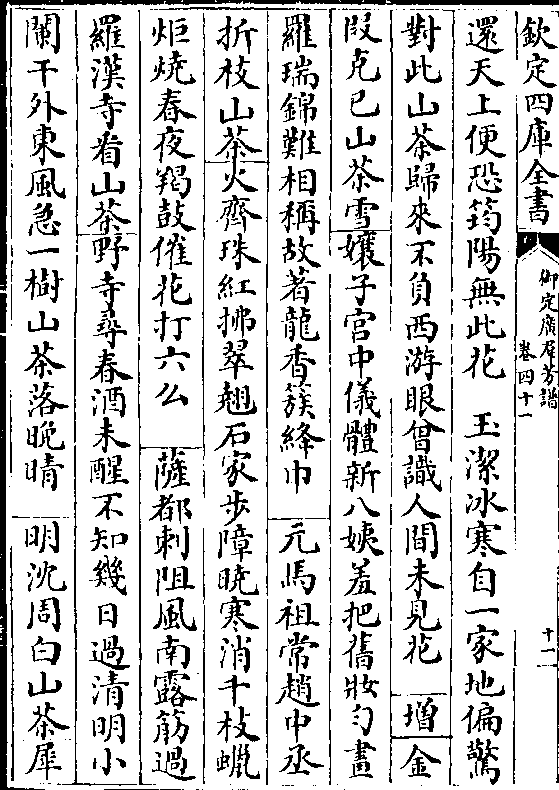 欽定四庫全書
御定廣群芳譜
卷四十一
十一
還天上便恐筠陽無此花　玉潔冰寒自一家地偏驚
對此山茶歸來不負西游眼曾識人間未見花　增　金
段克已山茶雪孃子宮中儀體新八姨羞把舊妝勻畫
羅瑞錦難相稱故著龍香簇絳巾　元馬祖常趙中丞
折枝山茶火齊珠紅拂翠翹石家步障曉寒消千枝蠟
炬燒春夜羯鼓催花打六么　薩都剌阻風南露筋過
羅漢寺看山茶野寺尋春酒未醒不知幾日過清明小
闌干外東風急一樹山茶落晚晴　明沈周白山茶犀